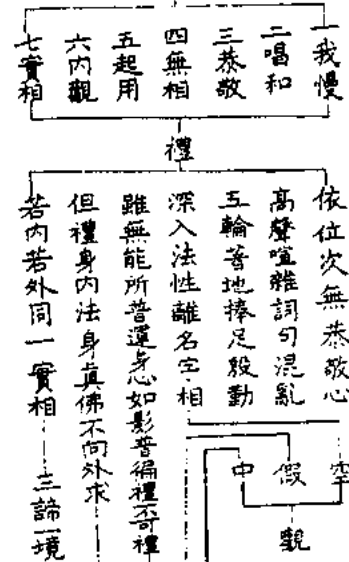 一我慢
二唱和
三恭敬
四無相
五起用
六內觀
七實相
禮
依位次無恭敬心
高聲喧雜詞句混亂
五輪着地捧足殷勤
深入法性離名字相
雖無能所普運身心如影普徧禮不可禮
但禮身內法身真佛不向外求
若內若外同一實相
三諦一境
空
假
中
觀